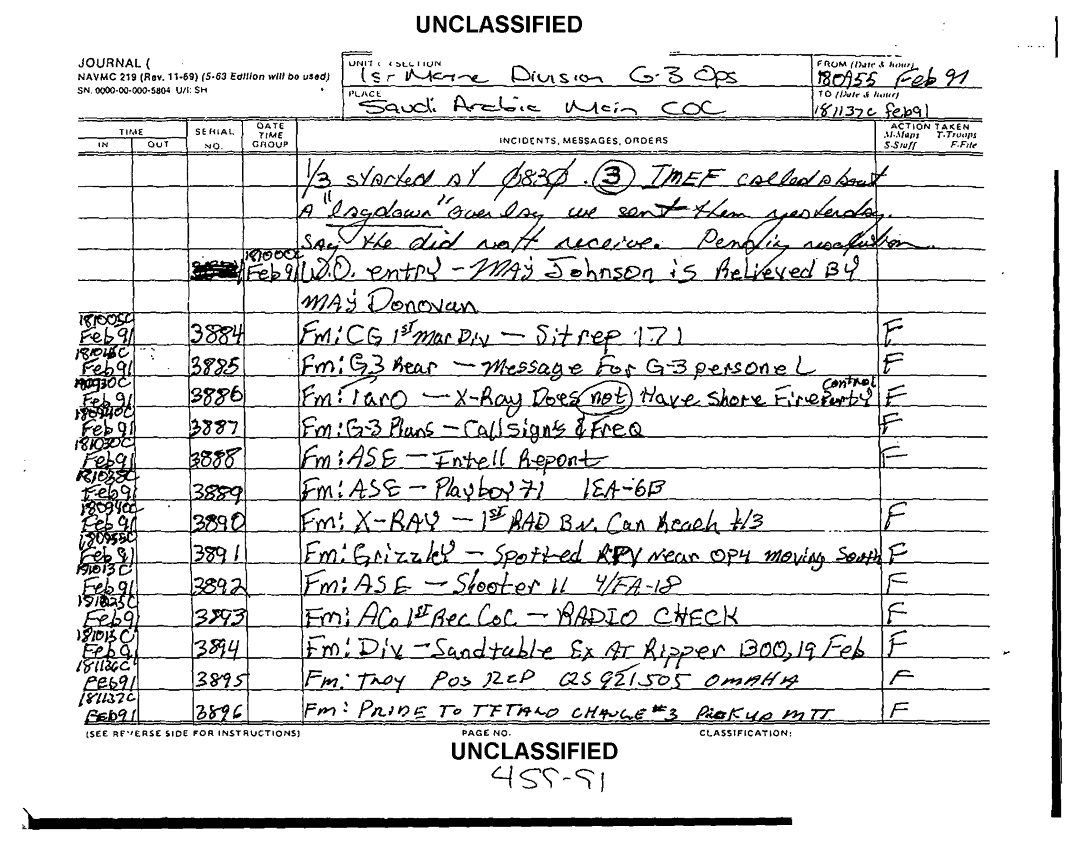 UNCLASSIFIED
JOURNAL (
NAVMC 219 (Rev. 11-69) (5-63 Edition will be used)
SN. 0000-00-000-5804 U/I: SH
UNIT SECTION
1st Marine Division G-3 Ops
FROM (Date & hour)
Feb 91
PLACE
Saudi Arabia Main COC
TO (Date & hour)
181137C Feb91
TIME
IN OUT
SERIAL NO.
DATE TIME GROUP
INCIDENTS, MESSAGES, ORDERS
ACTION TAKEN
M-Maps T-Troops
S-Staff F-File
1/3 started at 0830. (3) IMEF called about
A "lagdown" overlay we sent them yesterday.
Say the did not receive. Pending resolution.
181000C Feb 91 W.O. entry - MAJ Johnson is Relieved By
MAJ Donovan
181005C Feb 91 3884 Fm: CG 1st Mar Div - Sitrep 171 F
Feb 91 3885 Fm: G3 Rear - Message For G-3 personel F
Feb 91 3886 Fm: Taro - X-Ray Does not Have Shore Fire Control Party F
180940C Feb 91 3887 Fm: G-3 Plans - Callsigns & Freq F
181030C Feb 91 3888 Fm: ASE - Intell Report F
181038C Feb 91 3889 Fm: ASE - Playboy 71 1EA-6B
Feb 91 3890 Fm: X-RAY - 1st RAD BN. Can Reach 1/3 F
180955C Feb 91 3891 Fm: Grizzley - Spotted RPV near OP4 moving South F
181013C Feb 91 3892 Fm: ASE - Shooter 11 4/FA-18 F
181025C Feb 91 3893 Fm: A Co 1st Rec COC - RADIO CHECK F
181013C Feb 91 3894 Fm: Div - Sandtable Ex At Ripper 1300, 19 Feb F
181136C Feb 91 3895 Fm: Troy Pos Rep QS 921505 OMAHA F
181137C Feb 91 3896 Fm: PRIDE TO TF TARO CHANGE #3 Pickup MTT F
(SEE REVERSE SIDE FOR INSTRUCTIONS) PAGE NO. CLASSIFICATION:
UNCLASSIFIED